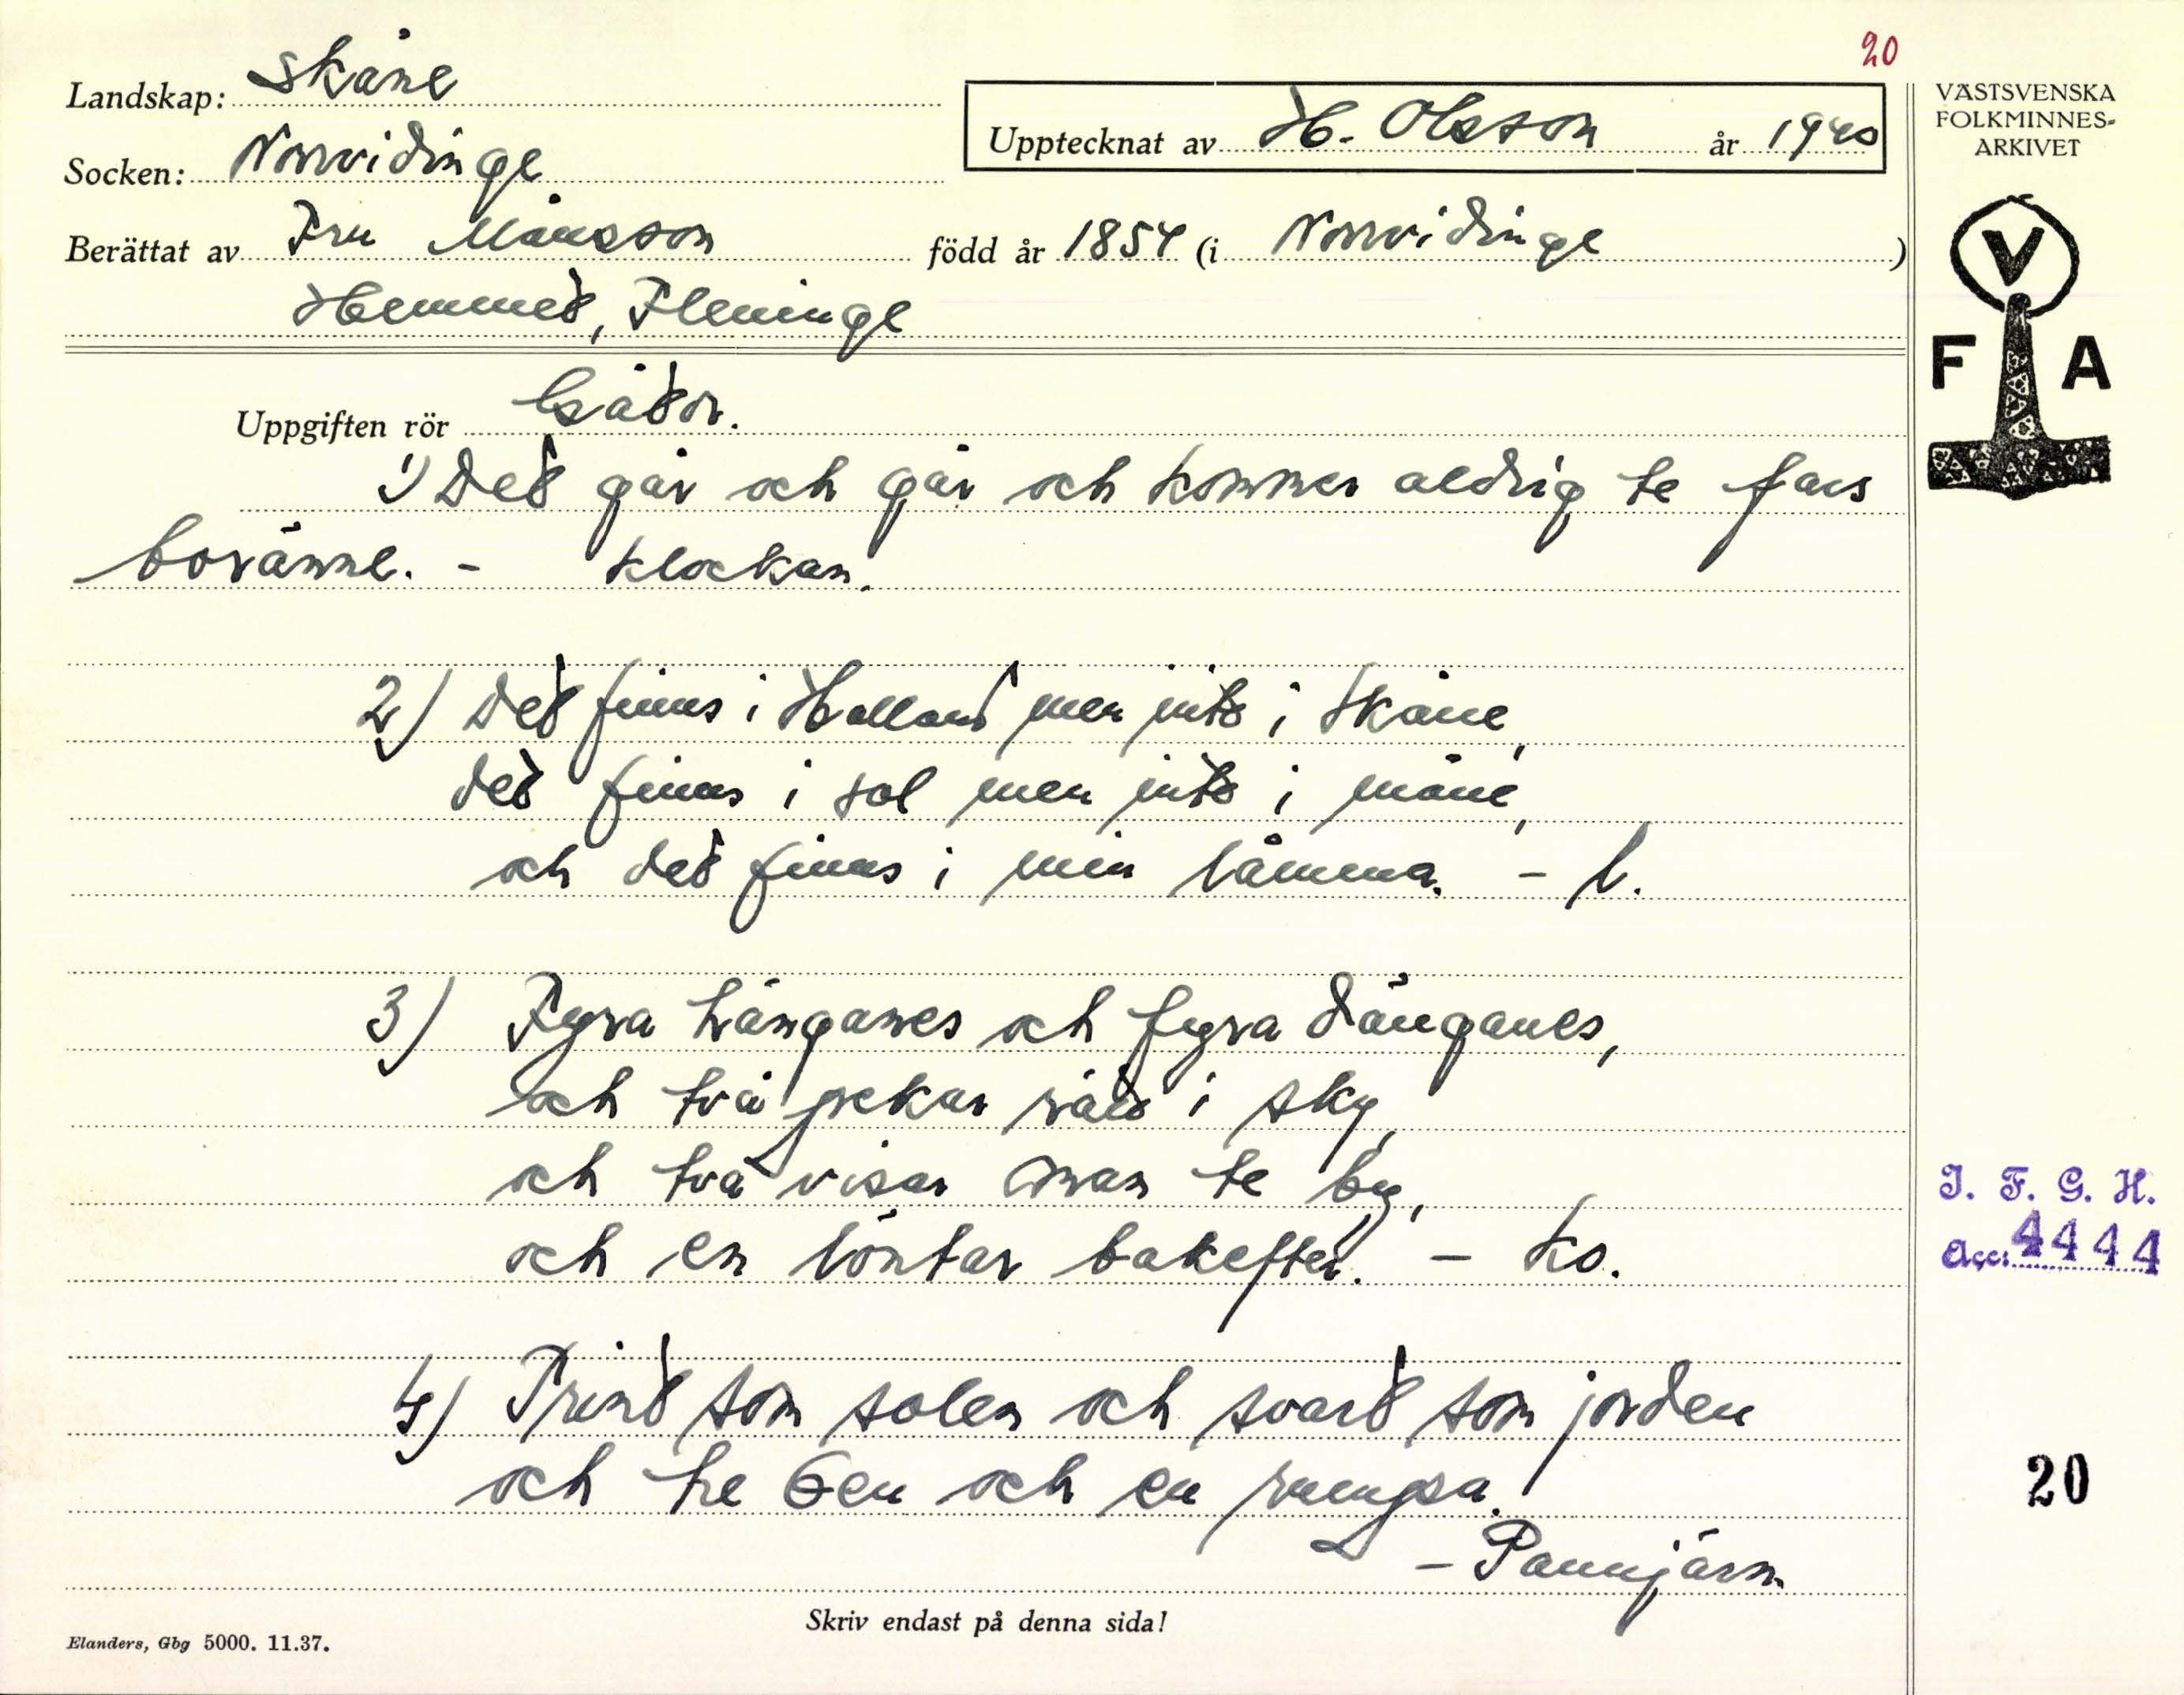 20
Landskap: Skåne
Upptecknat av H. Olsson år 1940
VÄSTSVENSKA
FOLKMINNES-
ARKIVET
Socken: Norrvidinge
Berättat av Fru Månsson född år 1854 (i Norrvidinge)
Hemmet, Fleninge
V
F A
Uppgiften rör Gåtor.
1) Det går och går och kommer aldrig te fars
boränne. - Klockan.
2) Det finns i Halland men inte i Skåne,
det finns i sol men inte i måne,
och det finns i min lämma. - l.
3) Fyra hänganes och fyra dänganes,
och två pekar rätt i sky,
och två visar man te by,
och en löntar bakefter. - Ko.
I. F. G. H.
Acc: 4444
4) Trint som solen och svart som jorden
och tre ben och en rumpa.
- Pannjärn
20
Skriv endast på denna sida!
Elanders, Gbg 5000. 11.37.